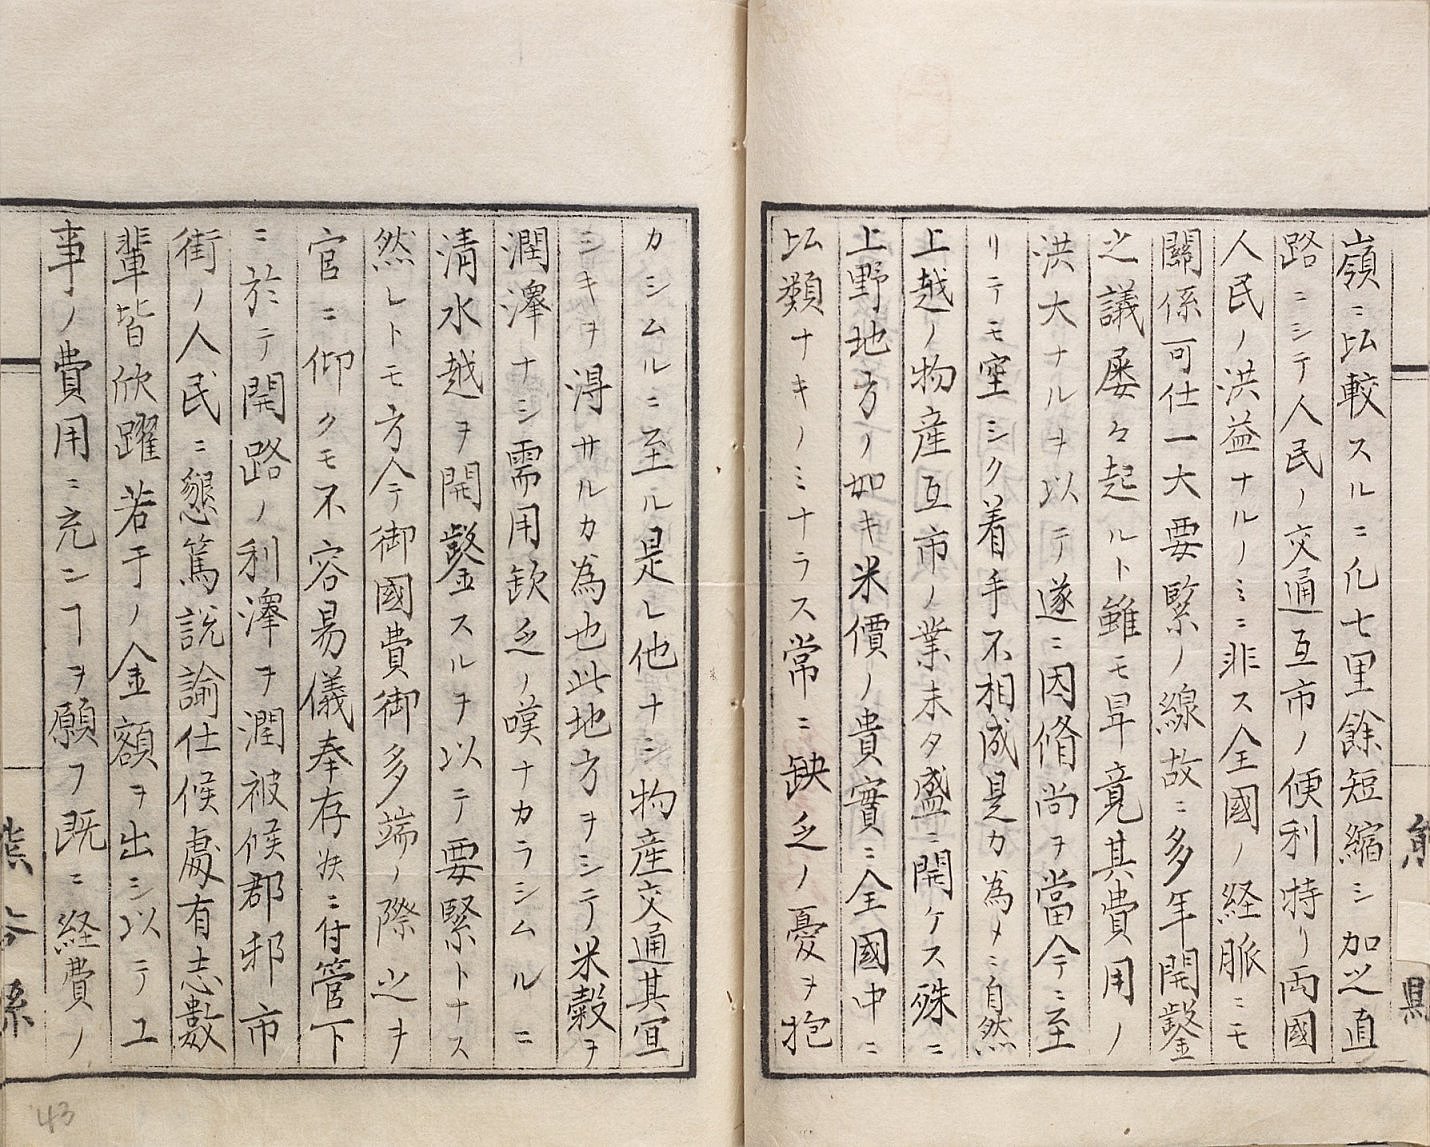 嶺ニ比較スルニ凡七里餘短縮シ加之直
路ニシテ人民ノ交通互市ノ便利特リ両國
人民ノ洪益ナルノミニ非ス全國ノ経脈ニモ
關係可仕一大要緊ノ線故ニ多年開鑿
之議屡々起ルト雖モ畢竟其費用ノ
洪大ナルヲ以テ遂ニ因脩尚ヲ當今ニ至
リテモ空シク着手不相成是カ為メニ自然
上越ノ物産互市ノ業未タ盛ニ開ケス殊ニ
上野地方ノ如キ米價ノ貴實ニ全國中ニ
比類ナキノミナラス常ニ缺乏ノ憂ヲ抱
カシムルニ至ル是レ他ナシ物産交通其宜
シキヲ得サルカ為也此地方ヲシテ米穀ヲ
潤澤ナシ需用欽乏ノ嘆ナカラシムルニ
清水越ヲ開鑿スルヲ以テ要緊トナス
然レトモ方今御國費御多端ノ際之ヲ
官ニ仰クモ不容易儀奉存候ニ付管下
ニ於テ開路ノ利澤ヲ潤被候郡邨市
街ノ人民ニ懇篤説諭仕候處有志數
輩皆欣躍若干ノ金額ヲ出シ以テエ
事ノ費用ニ充ンヿヲ願フ既ニ経費ノ
熊谷縣
43